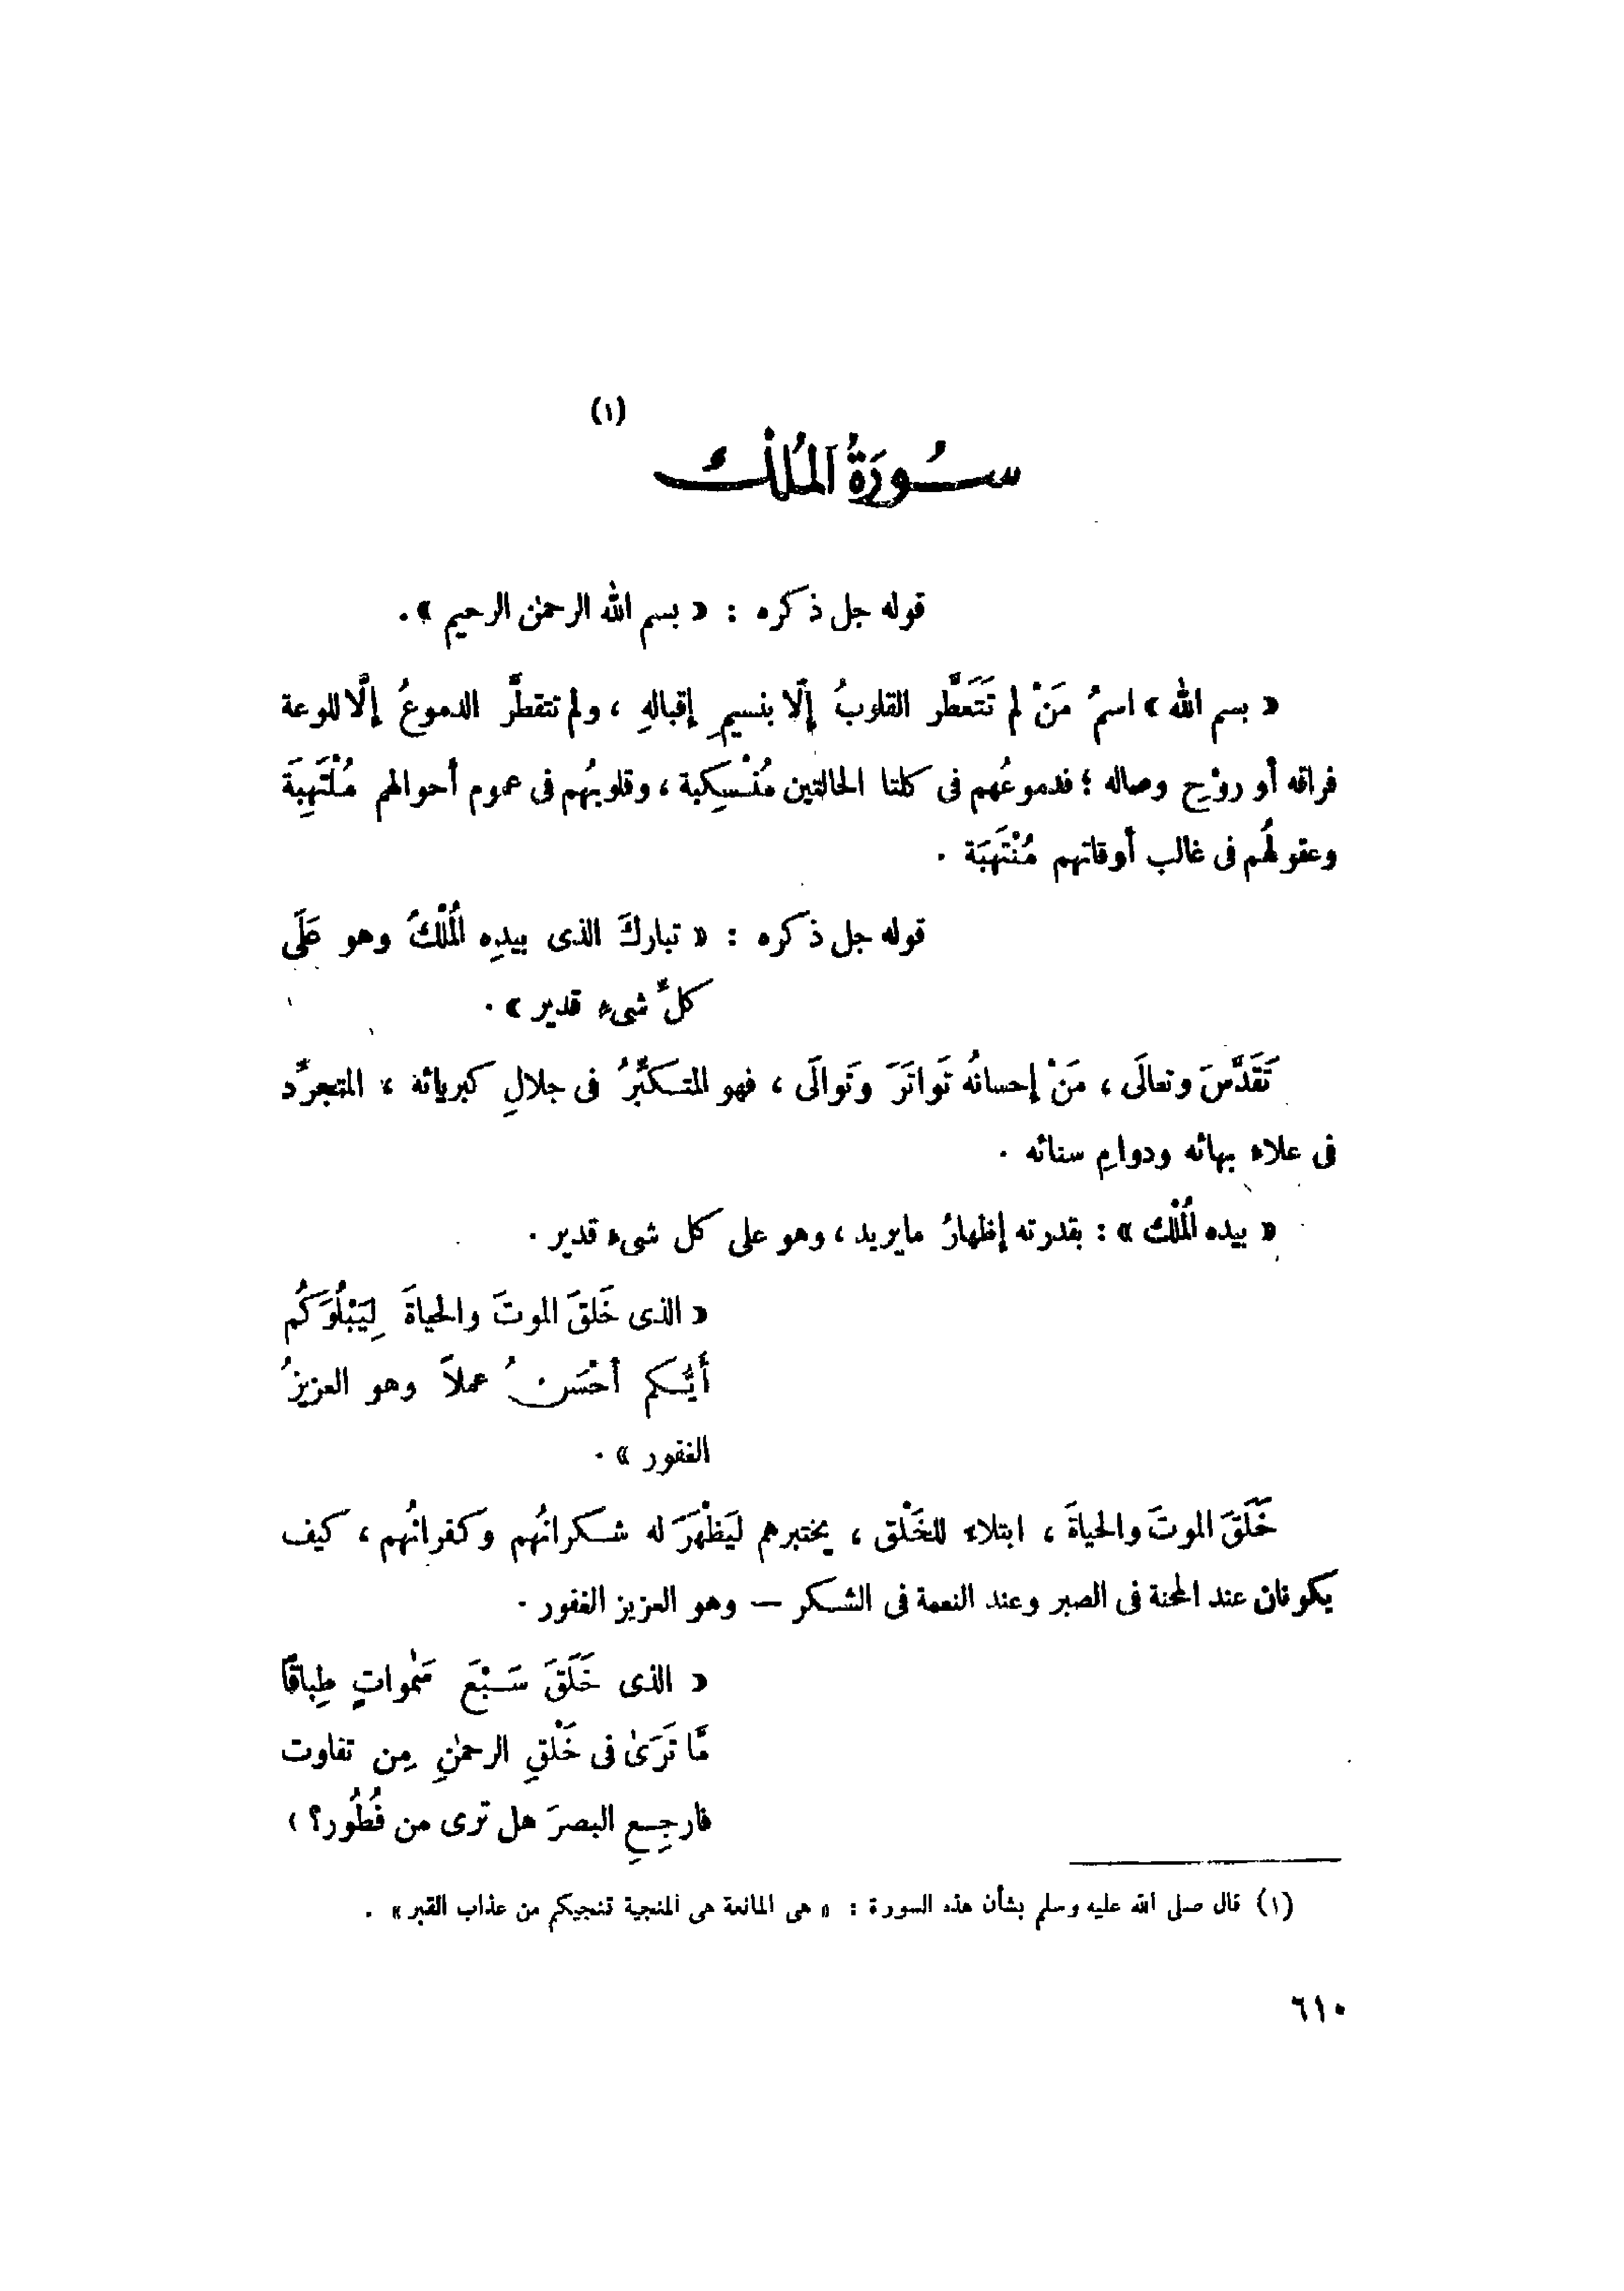 (١)
سُورَةُ المُلْك
قوله جل ذكره : « بسم الله الرحمٰن الرحيم » .
« بسم الله » اسمُ مَنْ لم تَتَعَطَّر القلوبُ إلّا بنسيمِ إقبالهِ ، ولم تتقطَّر الدموعُ إلَّا للوعة
فراقه أو روْحِ وصاله ؛ فدموعُهم فى كلتا الحالتين مُنْسكِبة ، وقلوبُهم فى عموم أحوالهم مُلْتَهِبَة
وعقولُهم فى غالب أوقاتهم مُنْتَهَبَة .
قوله جل ذكره : « تباركَ الذى بيدِه المُلْكُ وهو عَلَى
كلِّ شىءٍ قدير » .
تَقَدَّسَ وتعالَى ، مَنْ إحسانُه تَواتَرَ وتَوالَى ، فهو المتكبِّرُ فى جلالِ كبريائه ، المتجرِّد
فى علاء بهائه ودوامِ سنائه .
« بيده المُلْك » : بقدرته إظهارُ مايريد ، وهو على كل شىء قدير .
« الذى خَلقَ الموتَ والحياةَ لِيَبْلُوَكُم
أيُّكم أحْسَنُ عملاً وهو العزيزُ
الغفور » .
خَلَقَ الموتَ والحياةَ ، ابتلاء للخَلْق ، يختبرهم ليَظْهَرَ له شكرانُهم وكفرانُهم ، كيف
يكونان عند المحنة فى الصبر وعند النعمة فى الشكر — وهو العزيز الغفور .
« الذى خَلَقَ سَبْعَ سَمٰواتٍ طِباقًا
مَّا تَرَىٰ فى خَلْقِ الرحمٰنِ مِن تفاوت
فارجِعِ البصرَ هل ترى من فُطُور؟ »
(١) قال صلى الله عليه وسلم بشأن هذه السورة : « هى المانعة هى المنجية تنجيكم من عذاب القبر » .
٦١٠